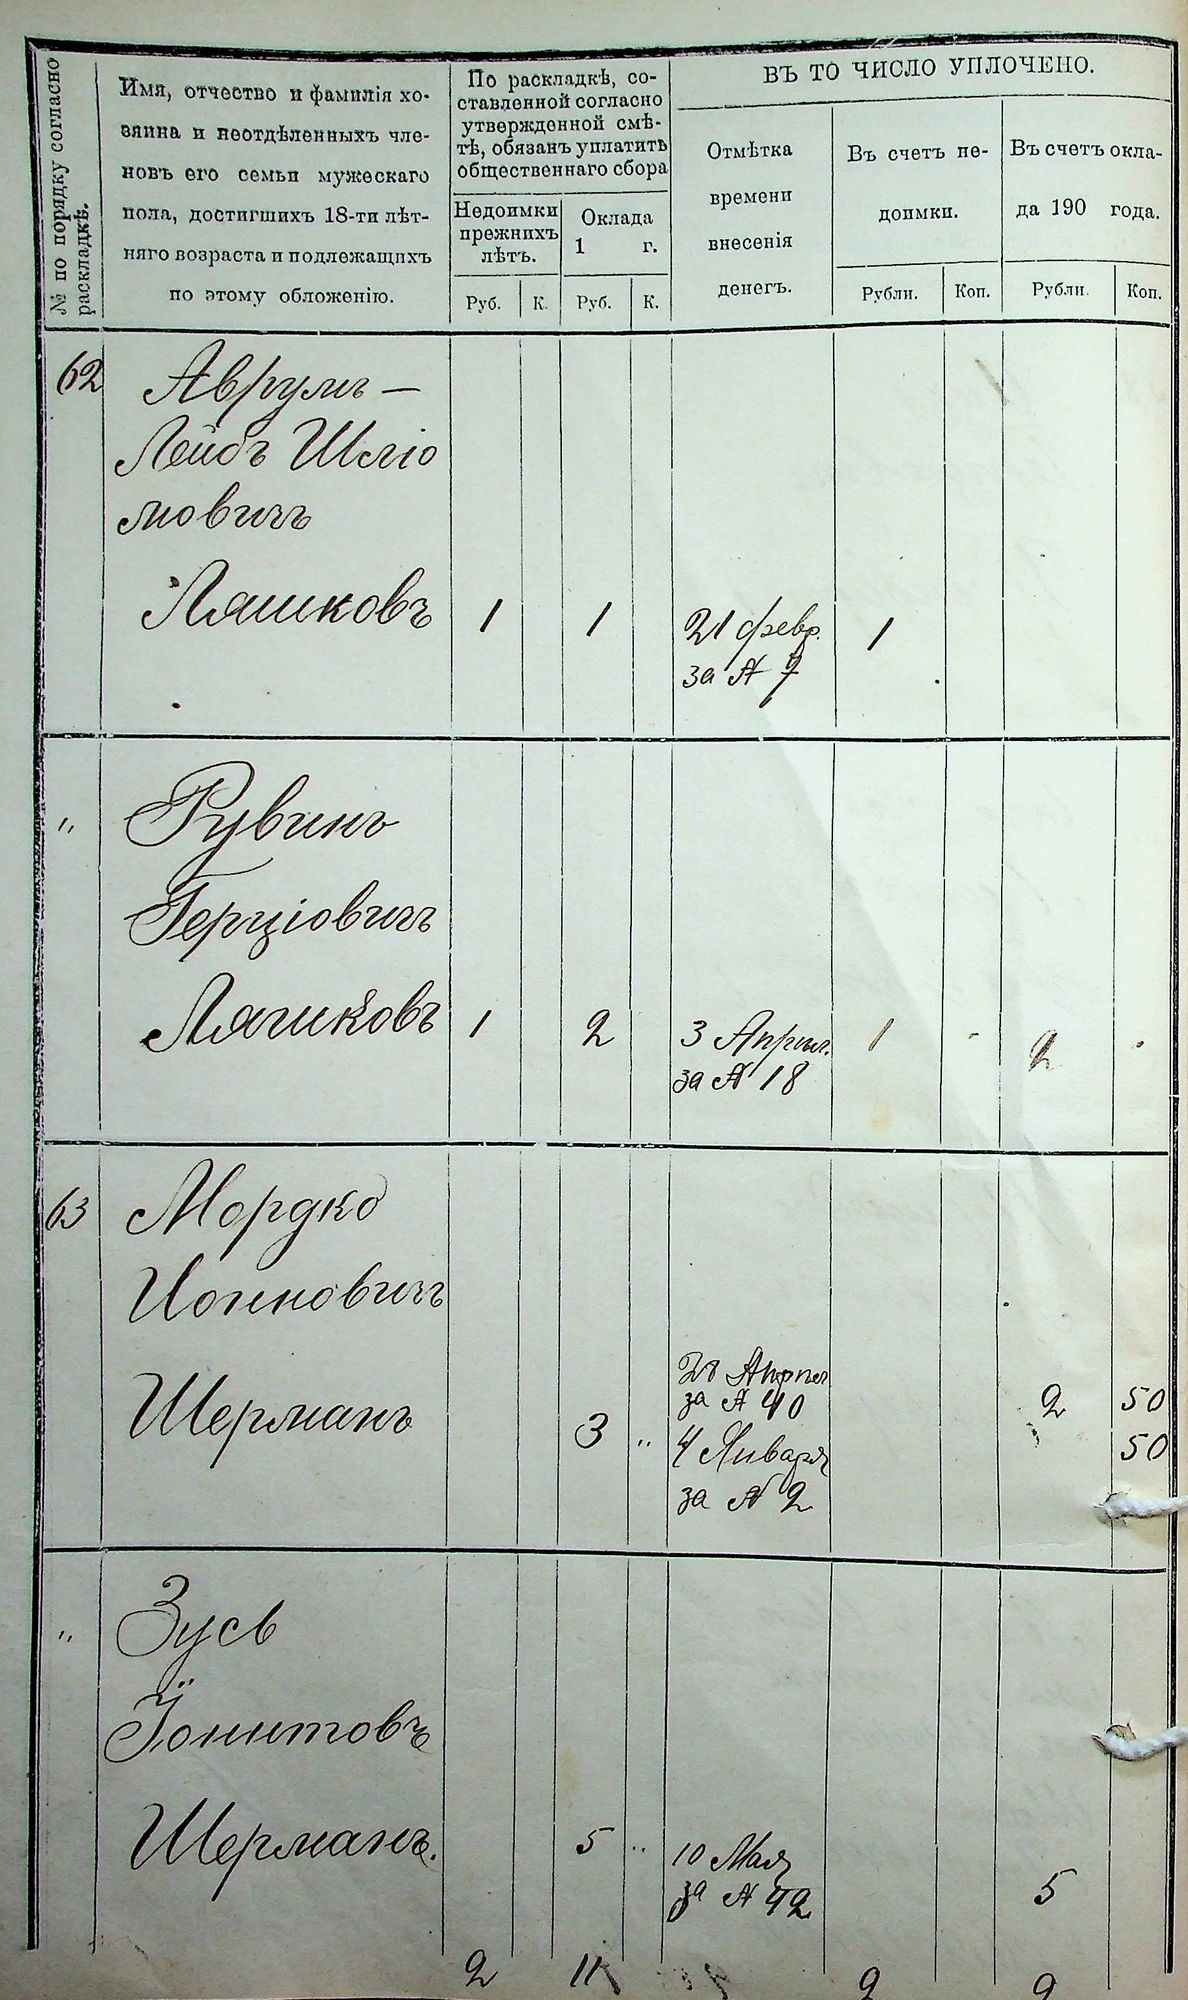 № по порядку согласно
раскладкѣ.
Имя, отчество и фамилія хо-
зяина и неотдѣленныхъ чле-
новъ его семьи мужескаго
пола, достигшихъ 18-ти лѣт-
няго возраста и подлежащихъ
по этому обложенію.
По раскладкѣ, со-
ставленной согласно
утвержденной смѣ-
тѣ, обязанъ уплатить
общественнаго сбора
Недоимки
прежнихъ
лѣтъ.
Оклада
1 г.
Руб. К. Руб. К.
ВЪ ТО ЧИСЛО УПЛОЧЕНО.
Отмѣтка
времени
внесенія
денегъ.
Въ счетъ не-
доимки.
Въ счетъ окла-
да 190 года.
Рубли. Коп. Рубли. Коп.
62 Аврумъ –
Лейбъ Шліо
мовичъ
Ляшковъ 1 1 21 февр. 1
за № 7
" Рувинъ
Герціовичъ
Ляшковъ 1 2 3 Апрѣл. 1 - 2 -
за № 18
63 Мордко
Иоиновичъ
28 Апрѣл
за № 40 2 50
Шерманъ 3 "
4 Января 50
за № 2
" Зусь
Шерманъ. 5 " 10 Мая 5
за № 42
2 11 2 9